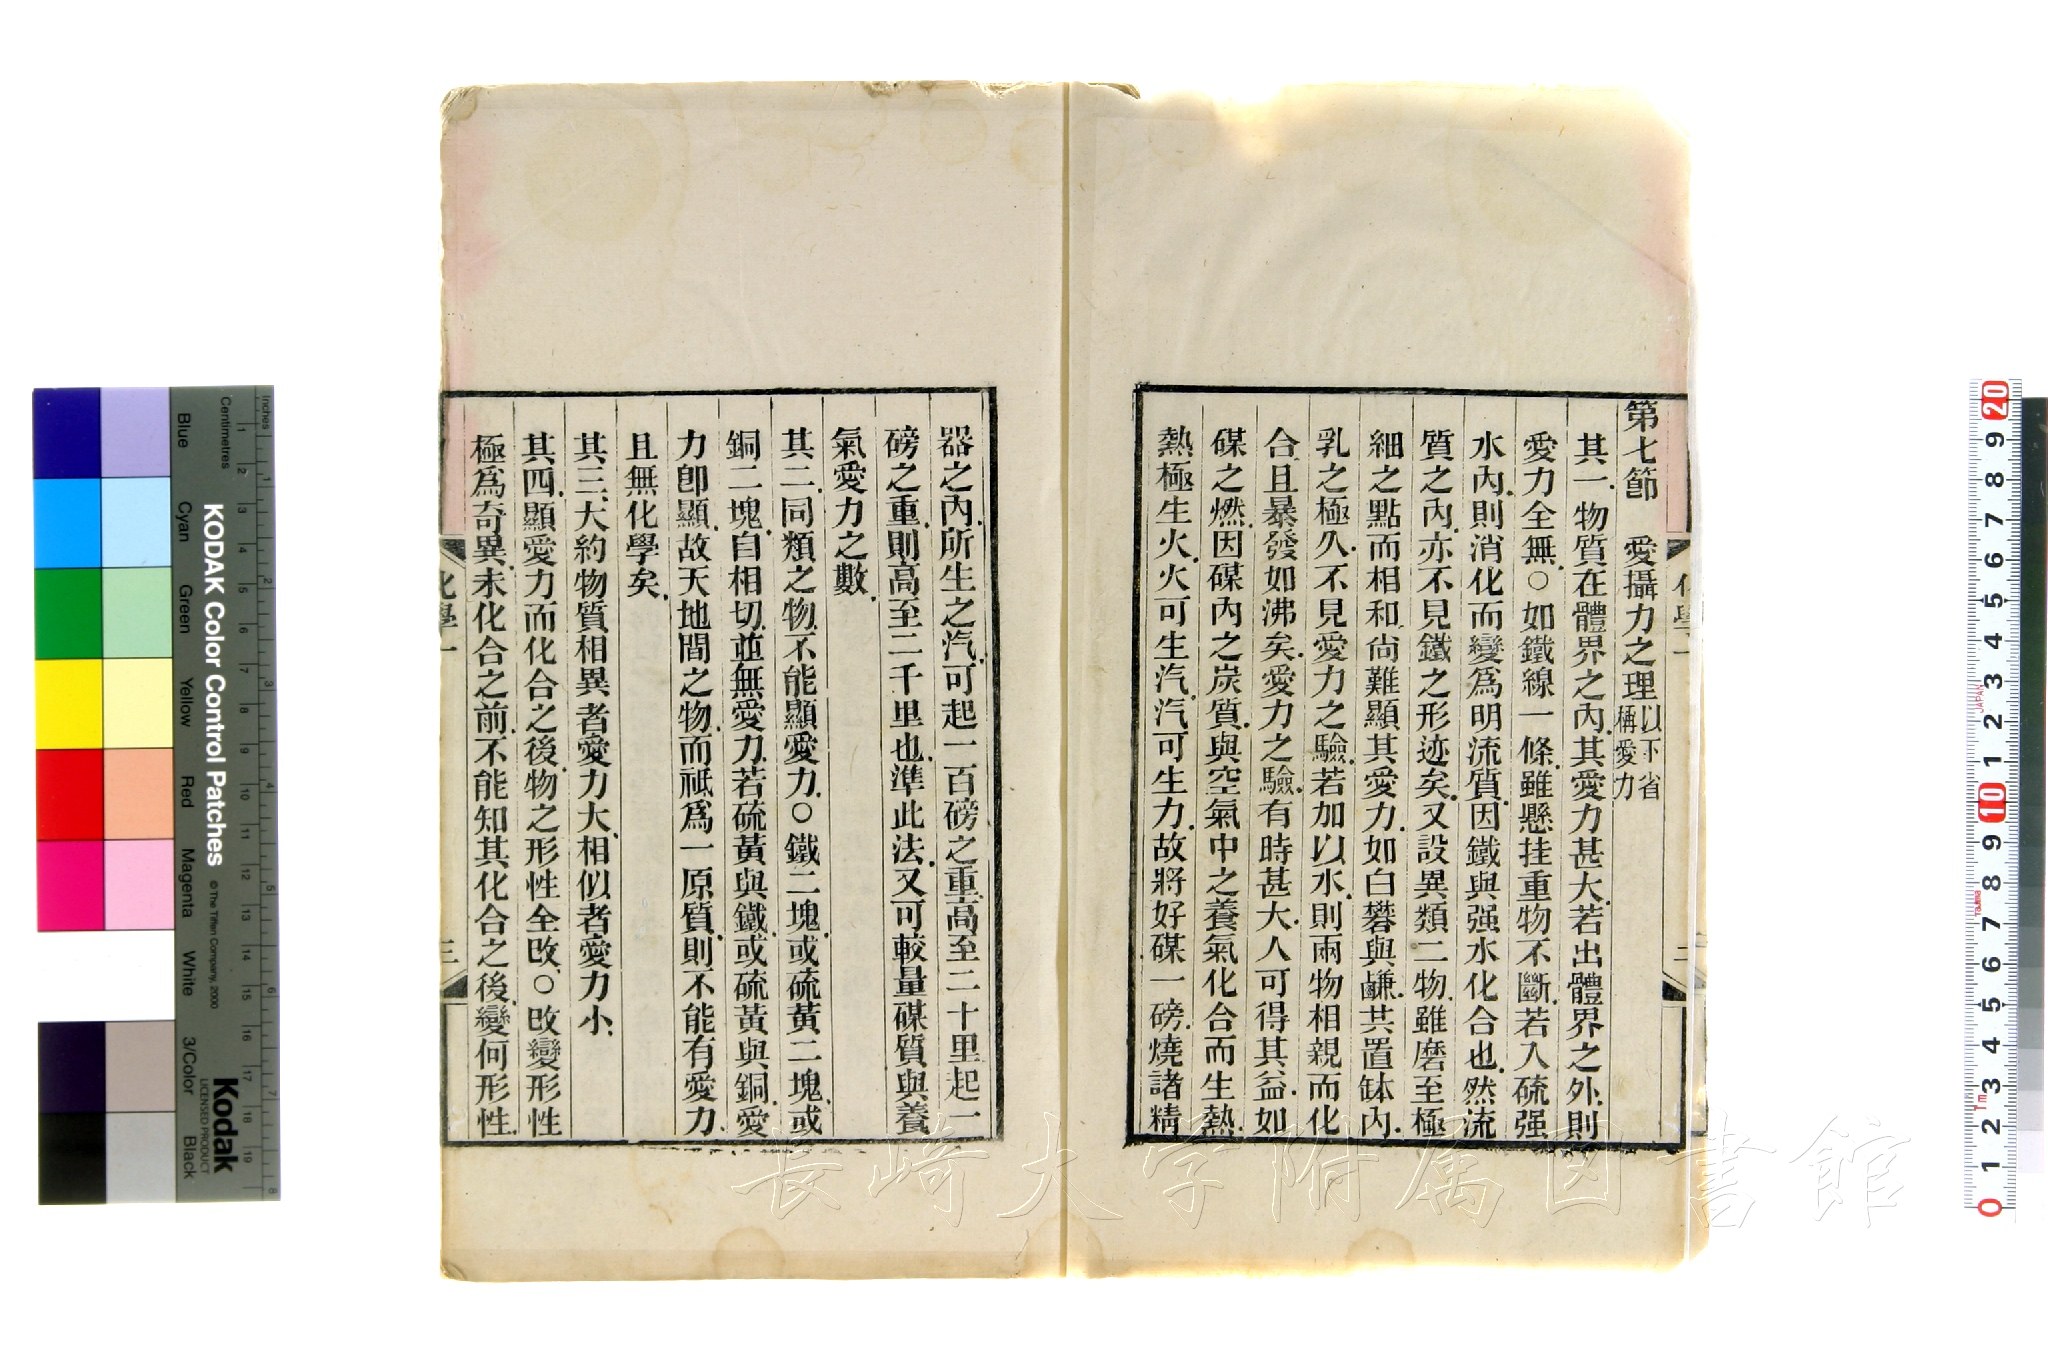 第七節 愛攝力之理以下省稱愛力
其一、物質在體界之內、其愛力甚大、若出體界之外、則
愛力全無、○如鐵線一條、雖懸挂重物不斷、若入硫强
水內、則消化而變爲明流質、因鐵與强水化合也、然流
質之內、亦不見鐵之形迹矣、又設異類二物、雖磨至極
細之點而相和、尙難顯其愛力、如白礬與鹻、共置缽內、
乳之極久、不見愛力之驗、若加以水、則兩物相親而化
合、且暴發如沸矣、愛力之驗、有時甚大、人可得其益、如
磔之燃、因磔內之炭質、與空氣中之養氣化合而生熱、
熱極生火、火可生汽、汽可生力、故將好磔一磅、燒諸精
器之內、所生之汽、可起一百磅之重、高至二十里、起一
磅之重、則高至二千里也、準此法、又可較量磔質與養
氣愛力之數、
其二、同類之物、不能顯愛力、○鐵二塊、或硫黃二塊、或
銅二塊、自相切、並無愛力、若硫黃與鐵、或硫黃與銅、愛
力卽顯、故天地間之物、而祗爲一原質、則不能有愛力、
且無化學矣、
其三、大約物質相異者愛力大、相似者愛力小、
其四、顯愛力而化合之後、物之形性全改、○改變形性
極爲奇異、未化合之前、不能知其化合之後、變何形性、
化學一
三
長崎大学附属図書館
KODAK Color Control Patches
© The Tiffen Company, 2000
Kodak
LICENSED PRODUCT
Inches
Centimetres
Blue
Cyan
Green
Yellow
Red
Magenta
White
3/Color
Black
JAPAN
Tajima